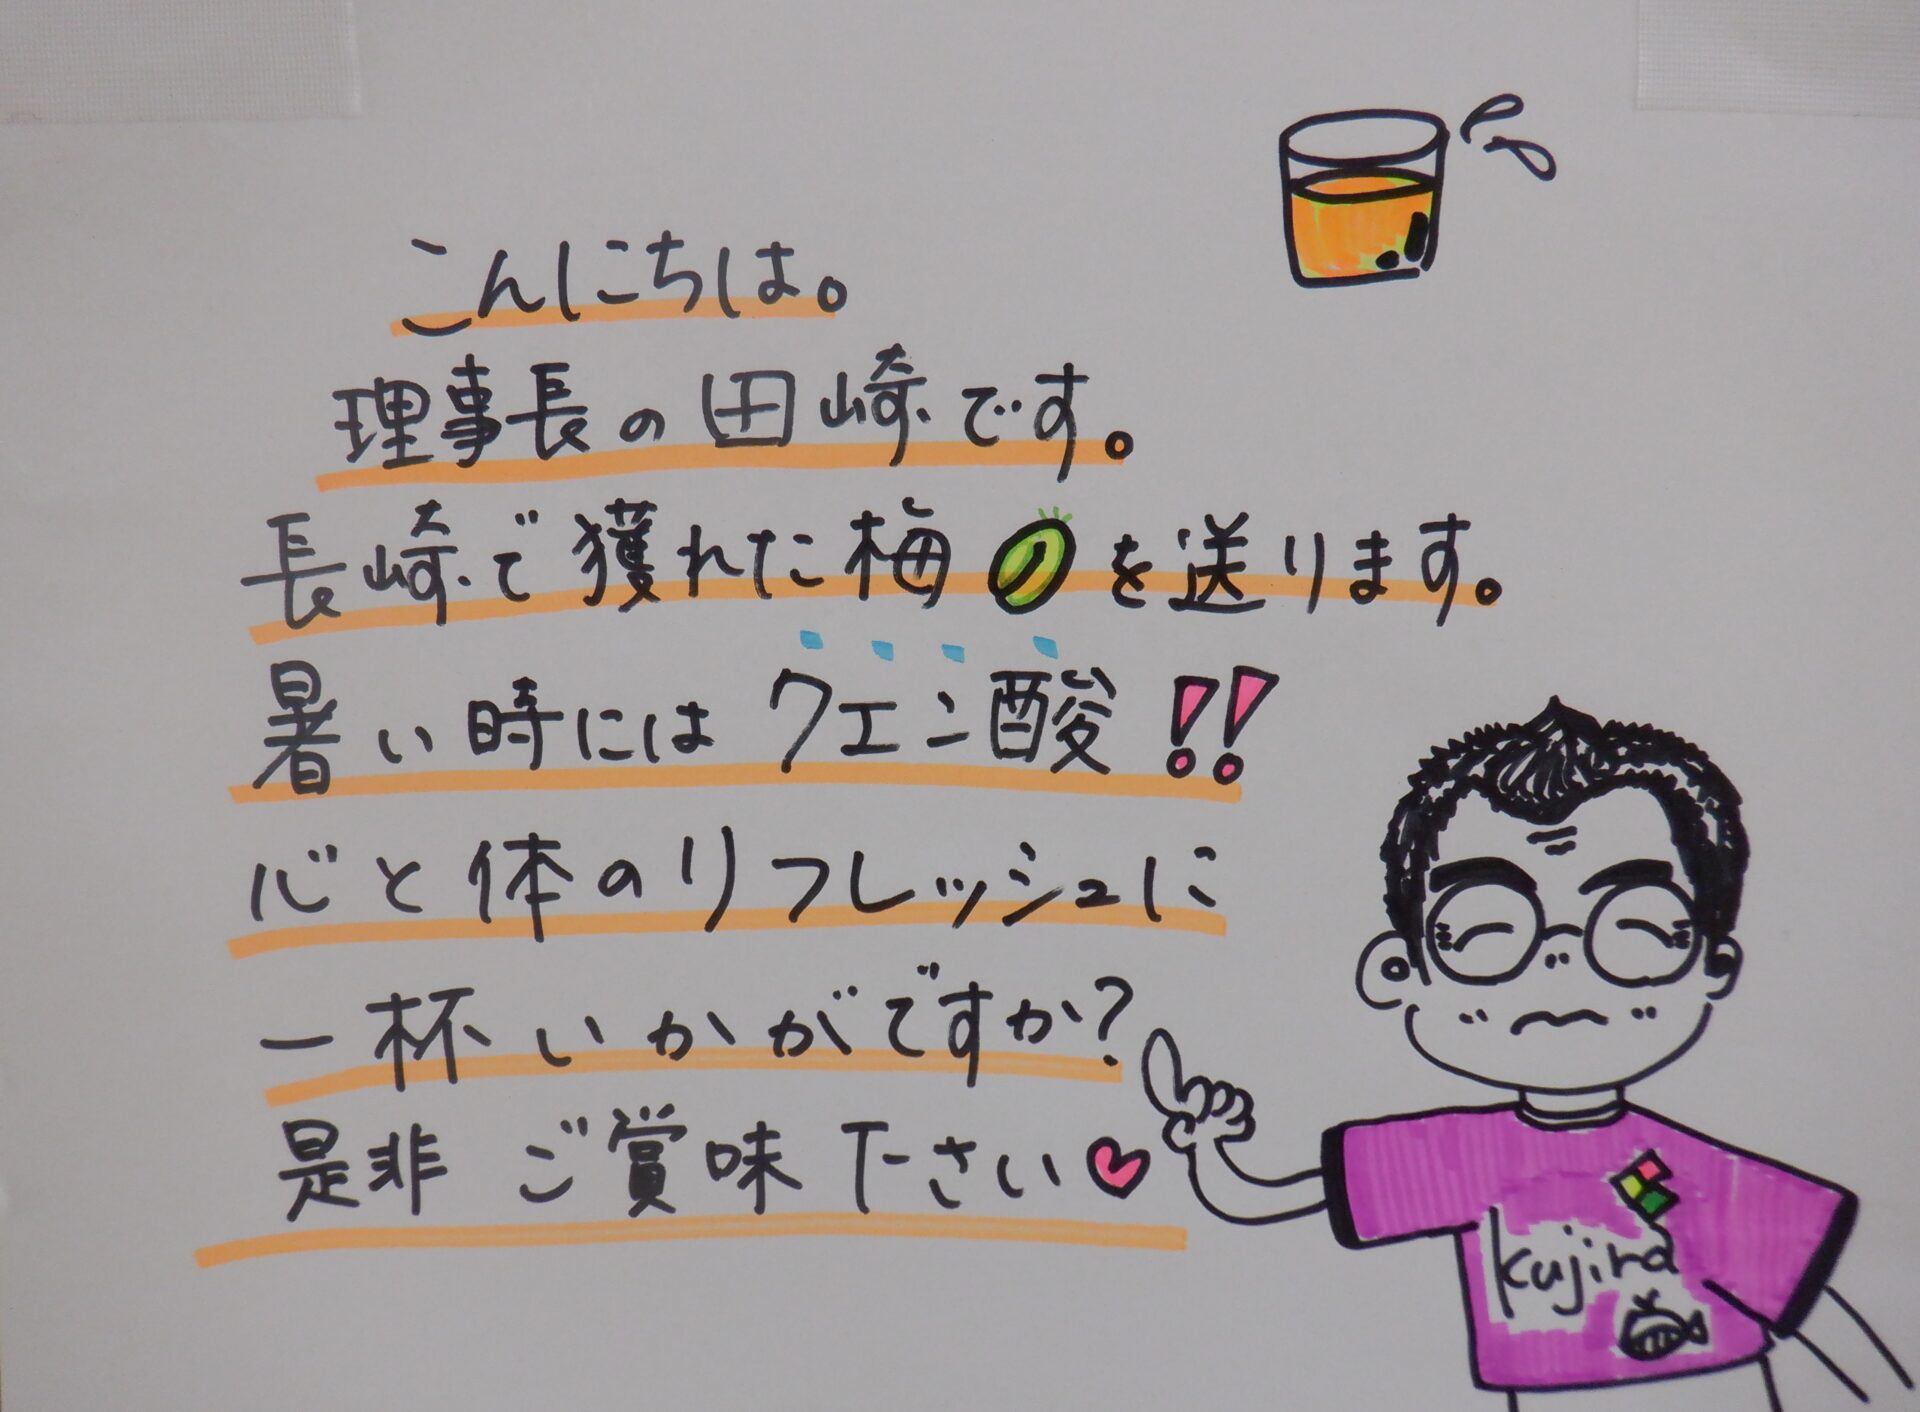 こんにちは。
理事長の田崎です。
長崎で獲れた梅を送ります。
暑い時にはクエン酸!!
心と体のリフレッシュに
一杯いかがですか?
是非 ご賞味下さい♥
kujira